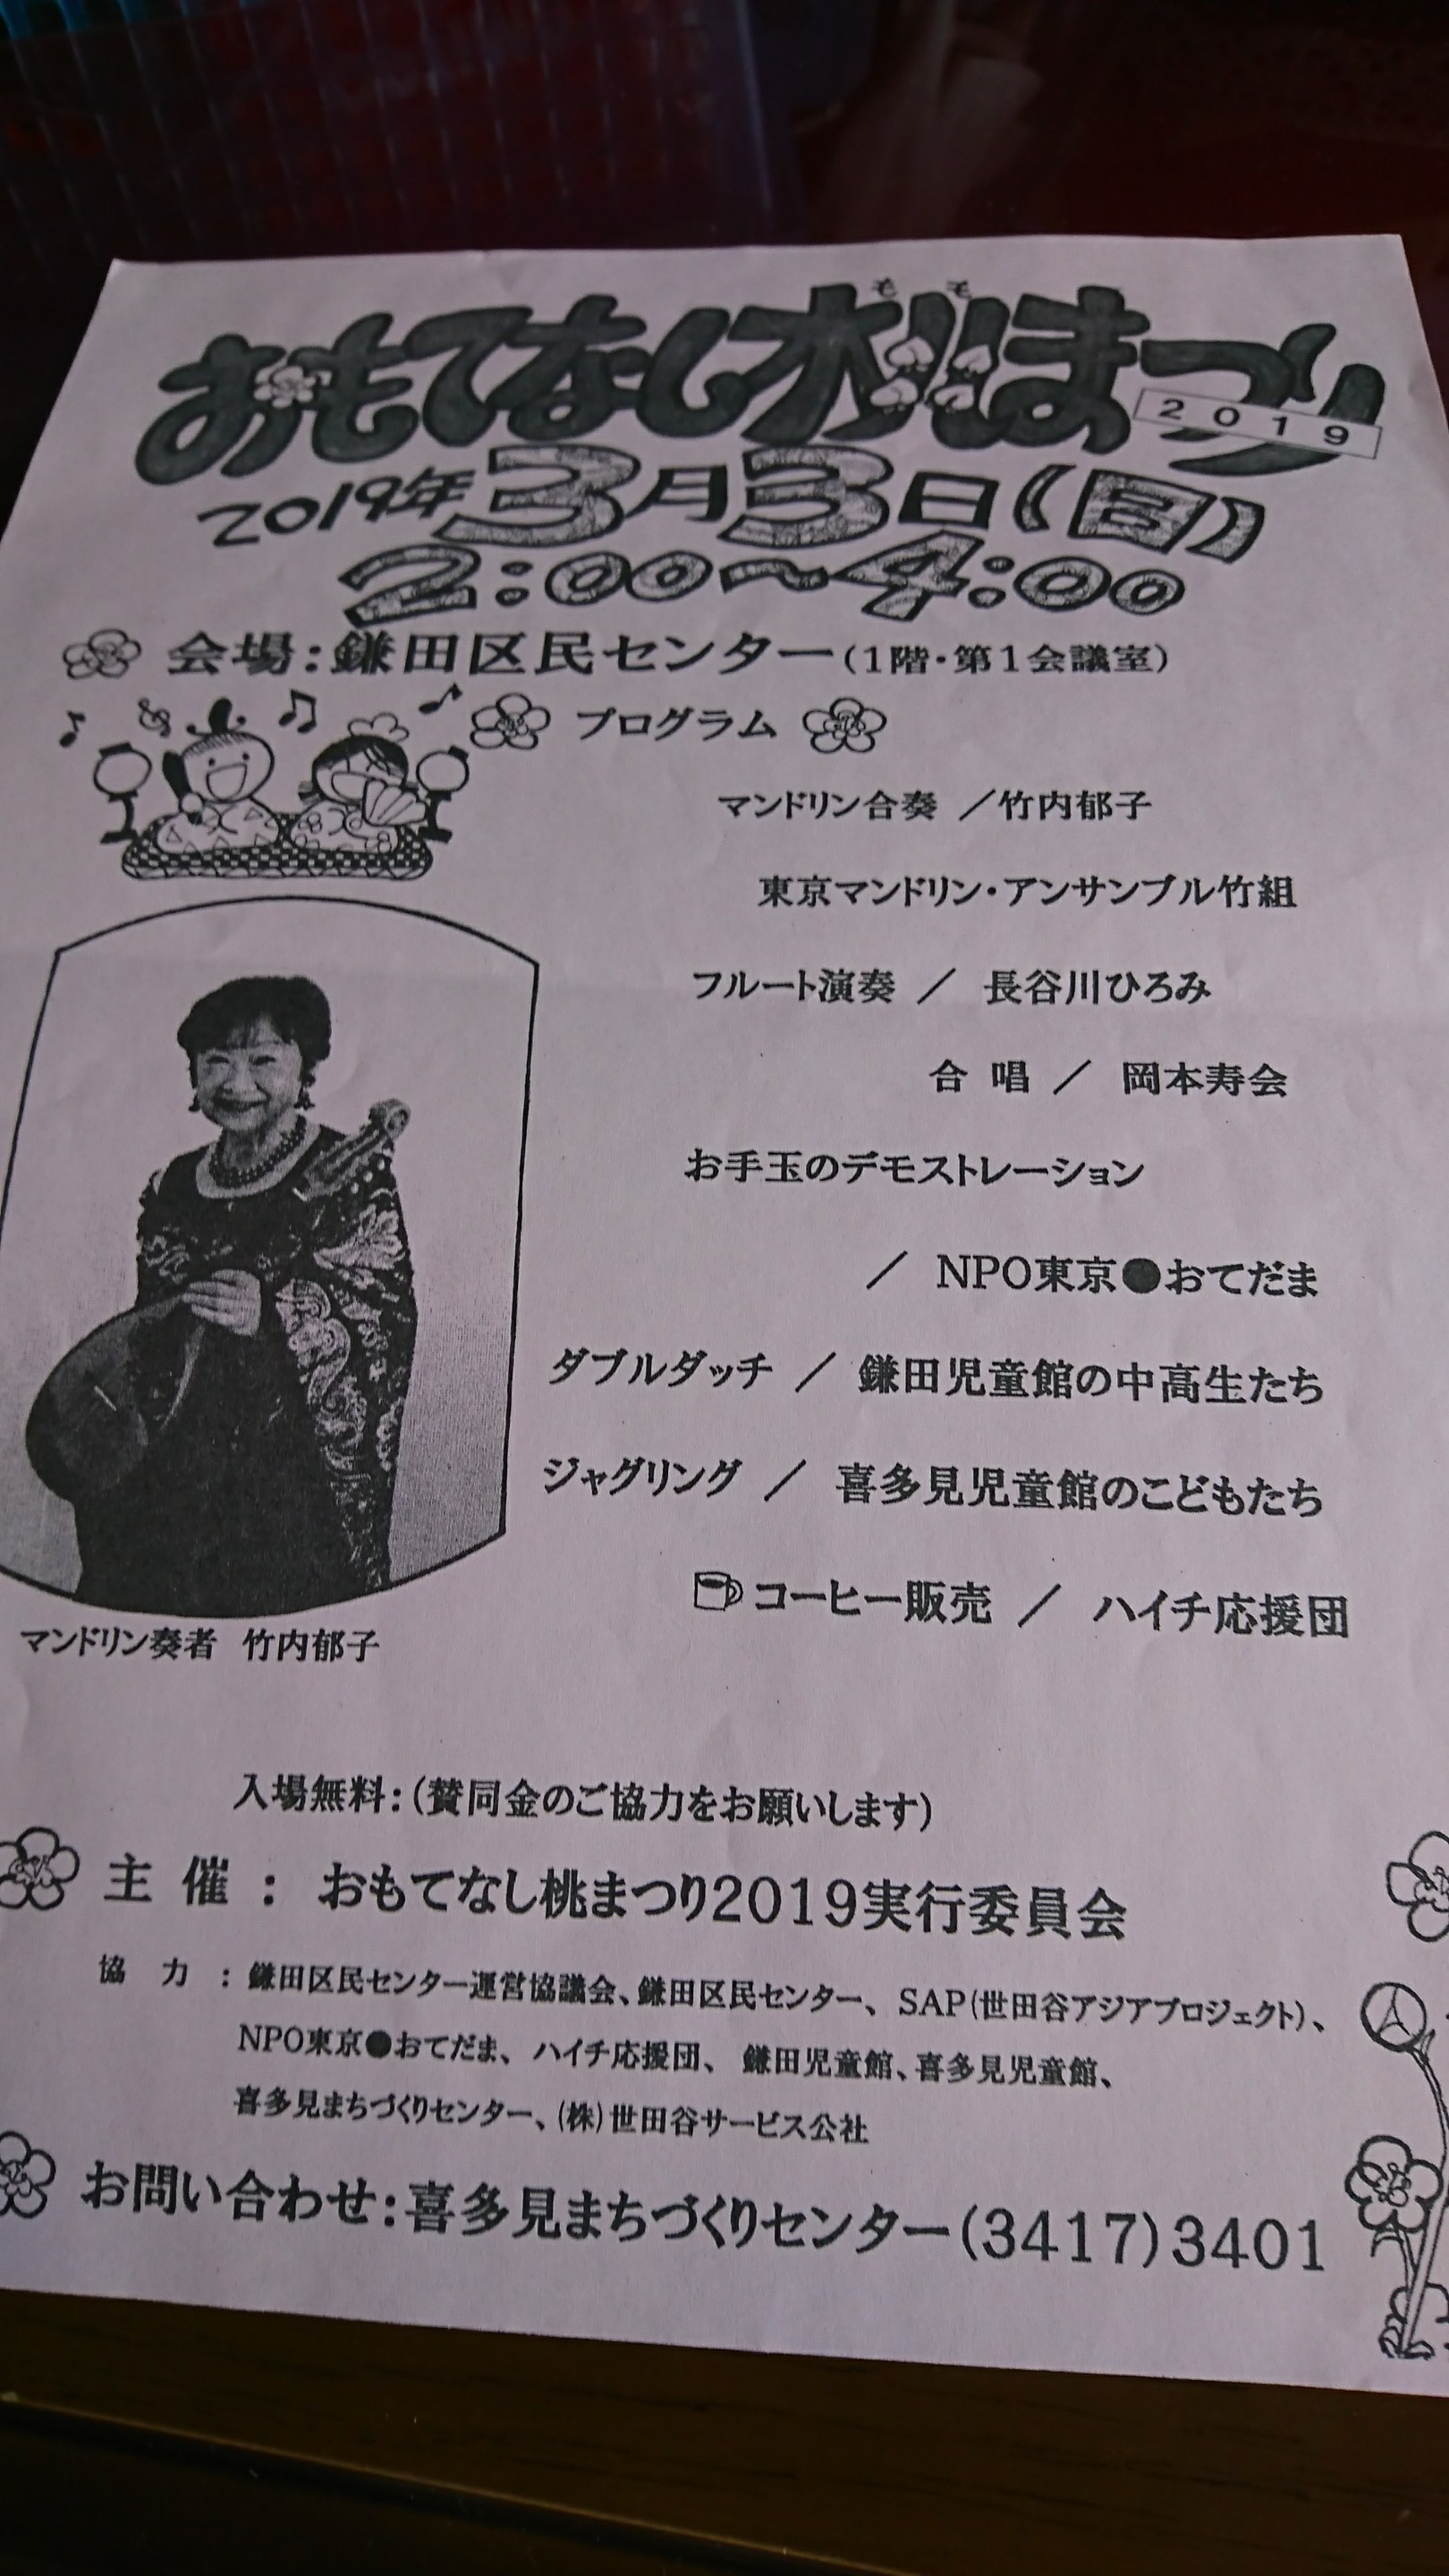 おもてなし桃まつり
モモ
2019
2019年3月3日(日)
2:00～4:00
会場:鎌田区民センター(1階・第1会議室)
プログラム
マンドリン合奏 ／竹内郁子
東京マンドリン・アンサンブル竹組
フルート演奏 ／ 長谷川ひろみ
合 唱 ／ 岡本寿会
お手玉のデモストレーション
／ NPO東京●おてだま
ダブルダッチ ／ 鎌田児童館の中高生たち
ジャグリング ／ 喜多見児童館のこどもたち
コーヒー販売 ／ ハイチ応援団
マンドリン奏者 竹内郁子
入場無料:(賛同金のご協力をお願いします)
主 催 : おもてなし桃まつり2019実行委員会
協 力 : 鎌田区民センター運営協議会、鎌田区民センター、SAP(世田谷アジアプロジェクト)、
NPO東京●おてだま、ハイチ応援団、鎌田児童館、喜多見児童館、
喜多見まちづくりセンター、(株)世田谷サービス公社
お問い合わせ:喜多見まちづくりセンター(3417)3401